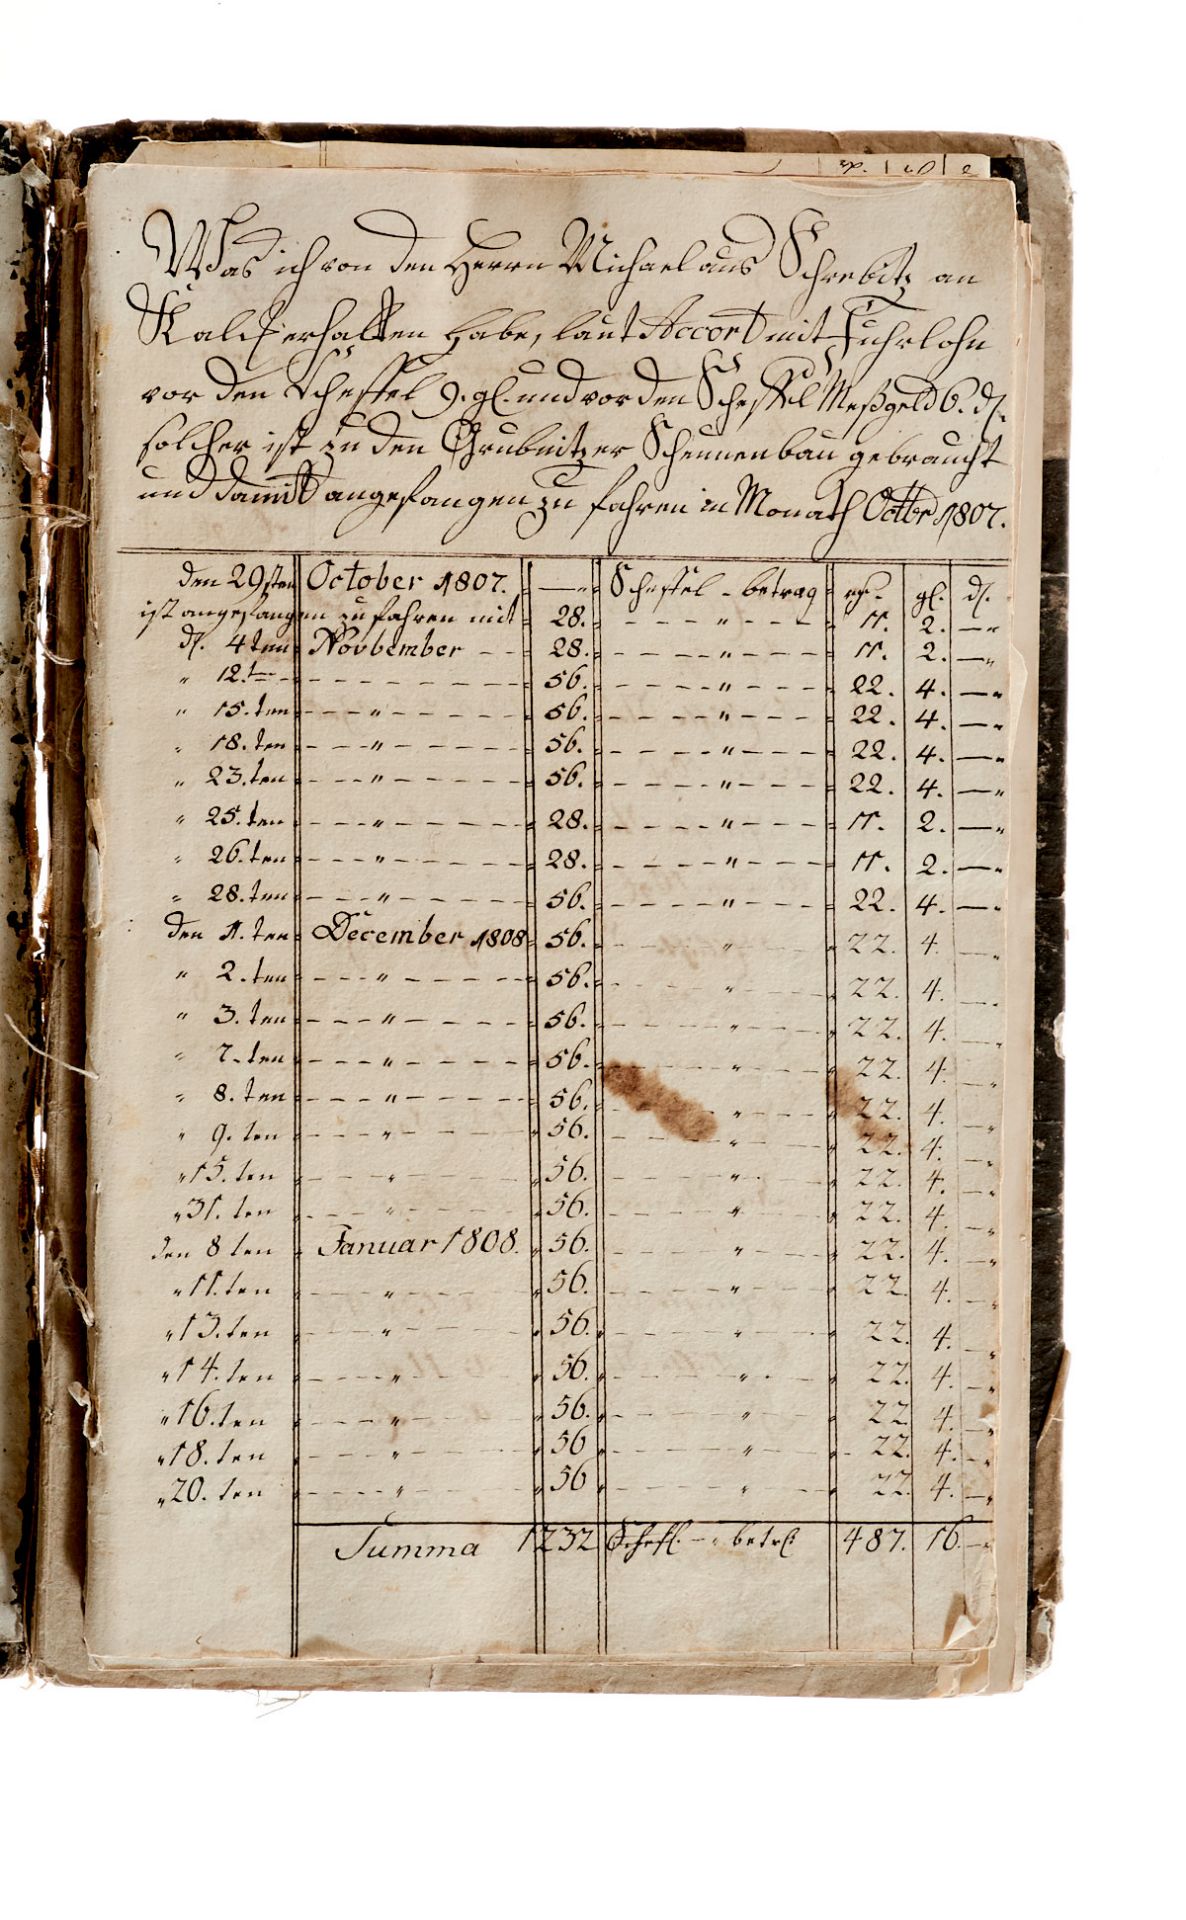 Was ich von den Herrn Michael aus Schrebitz an
Kalck erhalten habe, laut Accord mit Fuhrlohn
vor den Scheffel 9. gl. und vor den Scheffel Meßgeld 6. d.
solcher ist zu den Grubnitzer Scheunenbau gebraucht
und damit angefangen zu fahren in Monath Octbr 1807.
den 29sten October 1807. — Scheffel - betrag rh. gl. d.
ist angefangen zu fahren mit 28. " 11. 2. —"
d. 4ten Novbember 28. " 11. 2. —"
" 12.t 56. " 22. 4. —"
" 15.ten " 56. " 22. 4. —"
" 18.ten " 56. " 22. 4. —"
" 23.ten " 56. " 22. 4. —"
" 25.ten " 28. " 11. 2. —"
" 26.ten " 28. " 11. 2. —"
" 28.ten " 56. " 22. 4. —"
den 1.ten December 1808 56. " 22. 4. —"
" 2.ten " 56. " 22. 4. —"
" 3.ten " 56. " 22. 4. —"
" 7.ten " 56. " 22. 4. —"
" 8.ten " 56. " 22. 4. —"
" 9.ten " 56. " 22. 4. —"
" 15.ten " 56. " 22. 4. —"
" 31.ten " 56. " 22. 4. —"
den 8ten Januar 1808. 56. " 22. 4. —"
" 11.ten " 56. " 22. 4. —"
" 13.ten " 56. " 22. 4. —"
" 14.ten " 56. " 22. 4. —"
" 16.ten " 56. " 22. 4. —"
" 18.ten " 56 " 22. 4. —"
" 20.ten " 56 " 22. 4. —"
Summa 1232 Scheffl. - betrl: 487. 16. —"